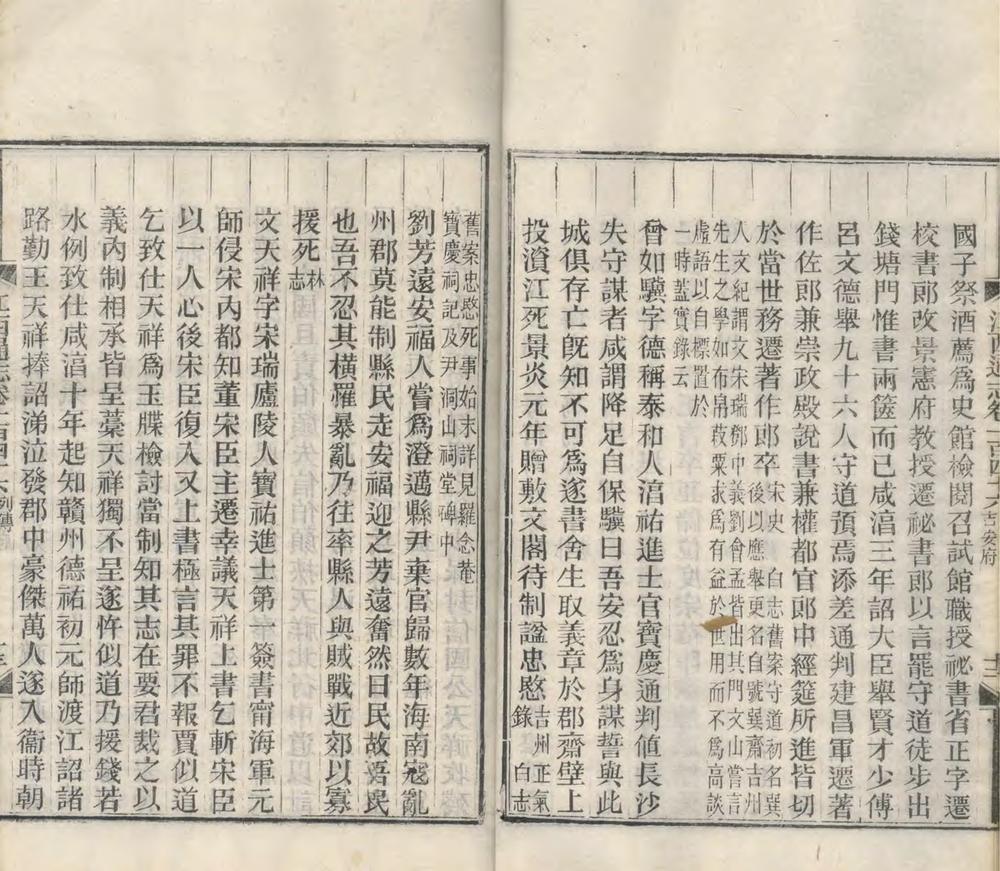 國子祭酒薦爲史館檢閱召試館職授祕書省正字遷
校書郎改景憲府教授遷祕書郎以言罷守道徒步出
錢塘門惟書兩篋而已咸湻三年詔大臣舉賢才少傅
呂文德舉九十六人守道預焉添差通判建昌軍遷著
作佐郎兼崇政殿說書兼權都官郎中經筵所進皆切
於當世務遷著作郎卒宋史 白志舊案守道初名巽
後以應舉更名自號巽齋吉州
人文紀謂文宋瑞鄧中義劉會孟皆出其門文山嘗言
先生之學如布帛菽粟求爲有益於世用而不爲高談
虛語以自標置於
一時蓋實錄云
曾如驥字德稱泰和人湻祐進士官寶慶通判値長沙
失守謀者咸謂降足自保驥曰吾安忍爲身謀誓與此
城俱存亡旣知不可爲遂書舍生取義章於郡齋壁上
投濱江死景炎元年贈敷文閣待制諡忠愍吉州正氣
錄 白志
舊案忠愍死事始末詳見羅念菴
寶慶祠記及尹洞山祠堂碑中
劉芳遠安福人嘗爲澄邁縣尹棄官歸數年海南寇亂
州郡莫能制縣民走安福迎之芳遠奮然曰民故吾民
也吾不忍其橫罹暴亂乃往率縣人與賊戰近郊以寡
援死林
志
文天祥字宋瑞廬陵人寶祐進士第一簽書甯海軍元
師侵宋內都知董宋臣主遷幸議天祥上書乞斬宋臣
以一人心後宋臣復入又上書極言其罪不報賈似道
乞致仕天祥爲玉牒檢討當制知其志在要君裁之以
義內制相承皆呈藁天祥獨不呈遂忤似道乃援錢若
水例致仕咸湻十年起知贛州德祐初元師渡江詔諸
路勤王天祥捧詔涕泣發郡中豪傑萬人遂入衞時朝